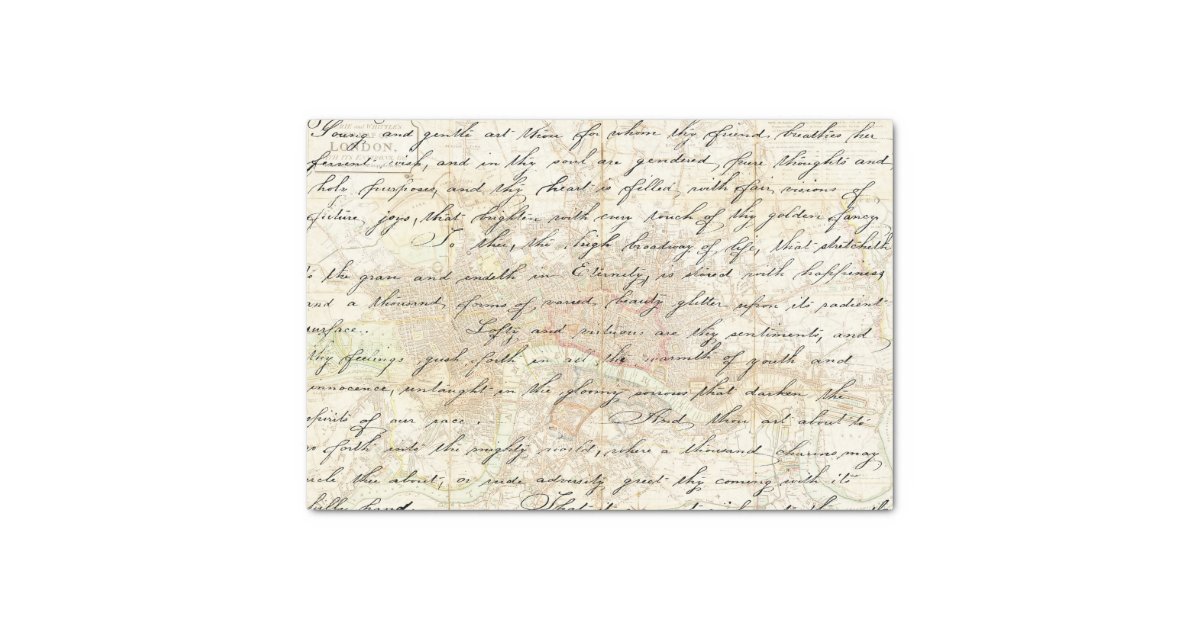 Young and gentle art thou for whom thy friend breathes her
LONDON,
fervent wish, and in thy soul are gendered pure thoughts and
holy purposes, and thy heart is filled with fair visions of
future joys, that brighten with every touch of thy golden fancy
To thee, the high broadway of life, that stretcheth
to the grave and endeth in Eternity, is stored with happiness
and a thousand forms of varied beauty glitter upon its radient
surface.. Lofty and virtuous are thy sentiments, and
thy feelings gush forth in all the warmth of youth and
innocence, untaught in the gloomy sorrows that darken the
spirits of our race. And thou art about to
go forth into the mighty world, where a thousand charms may
thee about, or rude adversity greet thy coming with its
chilly hand. That